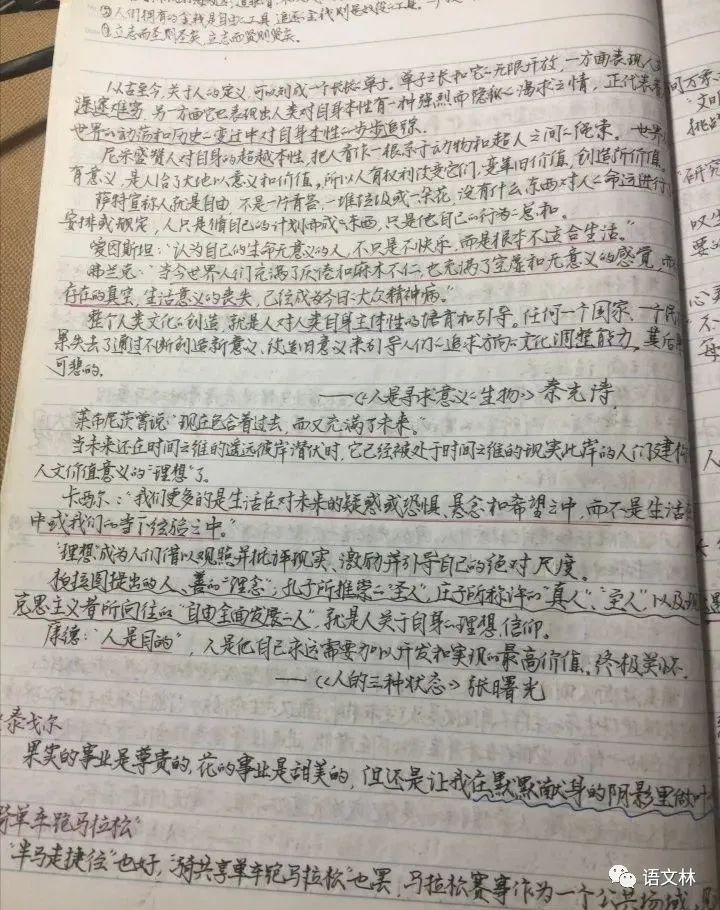 ②人们拥有的金钱是自由的工具,追逐的金钱则是奴役的工具。
④立志而圣则圣矣,立志而贤则贤矣。
从古至今,关于人的定义,可以列成一个长长的单子。单子之长和它的无限开放,一方面表现人
遂难穷,另一方面它也表现出人类对自身本性有一种强烈而隐秘的渴求之情,正代表着
世界的动荡和历史的变迁中对自身本性的步步追踪。
尼采盛赞人对自身的超越本性,把人看作一根系于动物和超人之间的绳索。世界
有意义,是人给了大地以意义和价值,所以人有权利改变它们,变革旧价值,创造新价值。
萨特宣称人就是自由,不是一片青苔,一堆垃圾或一朵花,没有什么东西对人的命运进行
安排或规定,人只是循自己的计划而成的东西,只是他自己的行为的总和。
爱因斯坦:“认为自己的生命无意义的人,不只是不快乐,而是根本不适合生活。”
弗兰克:“当今世界人们充满了厌倦和麻木不仁,也充满了空虚和无意义的感觉,
存在的真空,生活意义的丧失,已经成为今日的大众精神病。”
整个人类文化的创造,就是人对人类自身主体性的培育和引导。任何一个国家、一个民
果失去了通过不断创造新意义、改造旧意义来引导人们的追求方向的文化调整能力,其后
可悲的。
——《人是寻求意义的生物》秦光涛
莱布尼茨曾说:“现在包含着过去,而又充满了未来。”
当未来还在时间之维的遥远彼岸潜伏时,它已经被处于时间之维的现实此岸的人们建构
人文价值意义的“理想”了。
卡西尔:“我们更多的是生活在对未来的疑惑或恐惧、悬念和希望之中,而不是生活在
中或我们的当下经验之中。”
“理想”成为人们借以观照并批评现实、激励并引导自己的绝对尺度。
柏拉图提出的人、善的“理念”,孔子所推崇的“圣人”,庄子所称许的“真人”、“至人”,以及
克思主义者所向往的“自由全面发展的人”,就是人关于自身的理想、信仰。
康德:“人是目的”,人是他自己永远需要加以开发和实现的最高价值,终极关怀。
——《人的三种状态》张曙光
泰戈尔
果实的事业是尊贵的,花的事业是甜美的,但还是让我在默默献身的阴影里做叶
骑单车跑马拉松”
“半马走捷径”也好,“骑共享单车跑马拉松”也罢,马拉松赛事作为一个公共场域,
语文林